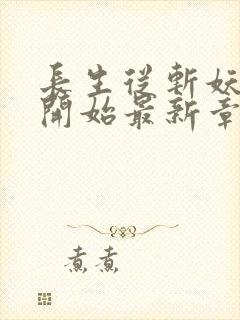 長生從斬妖
開始最新章
煮煮